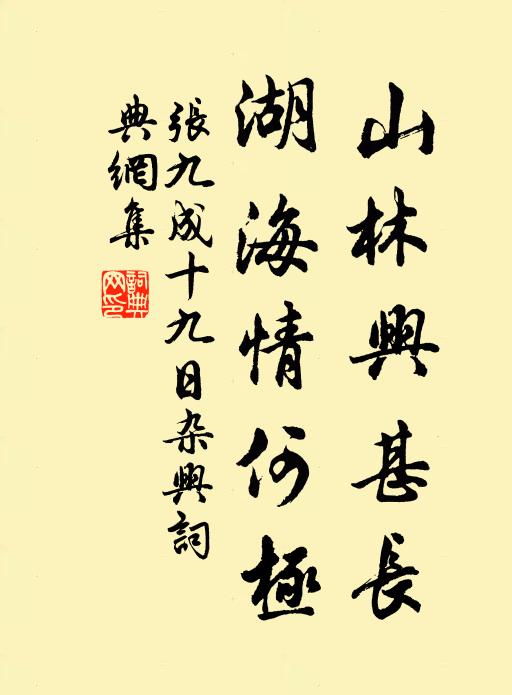 山林興甚長
湖海情何極
張九成十九日杂興詞
典網集
詞典
网印